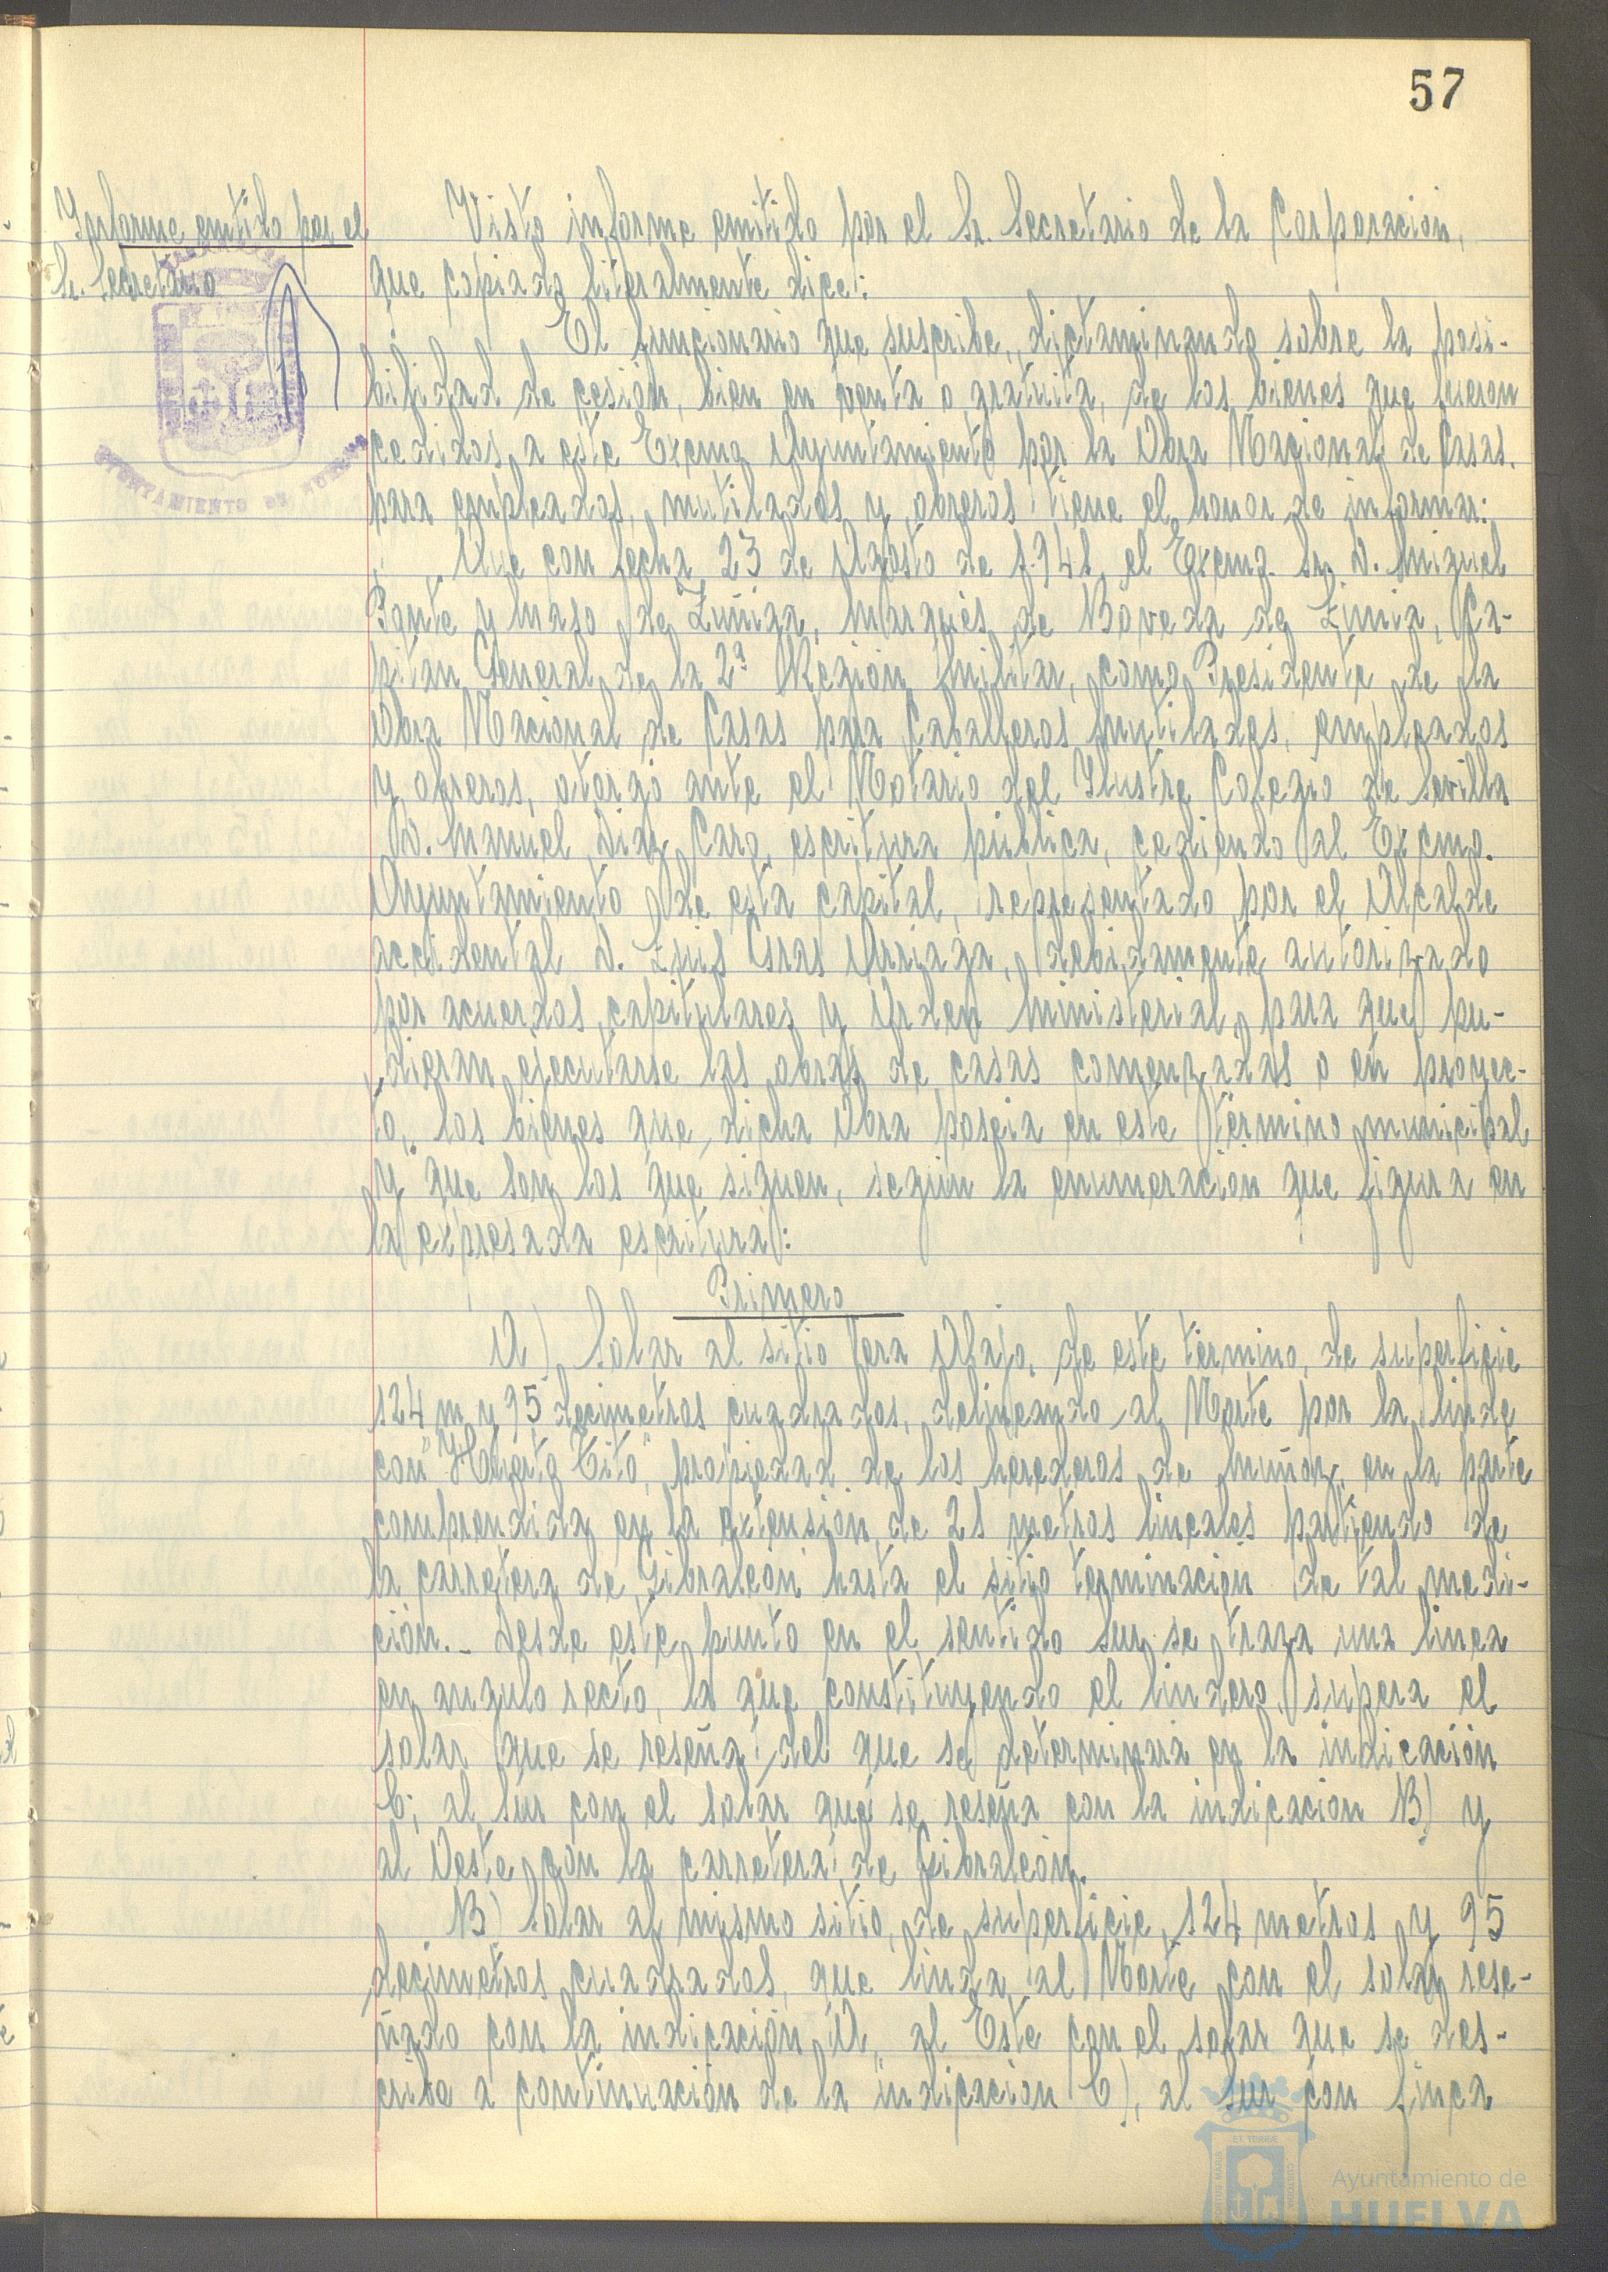 57
Informe emitido por el
Sr. Secretario
AYUNTAMIENTO DE HUELVA
Visto informe emitido por el Sr. Secretario de la Corporación,
que copiado literalmente dice:
El funcionario que suscribe, dictaminando sobre la posi-
bilidad de cesión, bien en venta o gratuita, de los bienes que fueron
cedidos a este Excmo Ayuntamiento por la Obra Nacional de Casas
para empleados, mutilados y obreros tiene el honor de informar:
Que con fecha 23 de Agosto de 1.941, el Excmo. Sr. D. Miguel
Ponte y Maso de Zúñiga, Marqués de Bóveda de Limia, Ca-
pitan General de la 2ª Región Militar, como Presidente de la
Obra Nacional de Casas para Caballeros Mutilados, empleados
y obreros, otorgó ante el Notario del Ilustre Colegio de Sevilla
D. Manuel Diaz Caro, escritura pública, cediendo al Excmo.
Ayuntamiento de esta capital, representado por el Alcalde
accidental D. Luis Arriaga, debidamente autorizado
por acuerdos capitulares y Orden Ministerial, para que pu-
dieran ejecutarse las obras de casas comenzadas o en proyec-
to, los bienes que dicha Obra poseia en este término municipal
y que son los que siguen, según la enumeración que figura en
la expresada escritura:
Primero
A) Solar al sitio Vera Abajo, de este término, de superficie
124 m y 95 decimetros cuadrados, delineando al Norte por la linde
con "Huerto Tito", propiedad de los herederos de Muñoz, en la parte
comprendida en la extensión de 21 metros lineales partiendo de
la carretera de Gibraleón hasta el sitio terminación de tal medi-
ción.- Desde este punto en el sentido Sur se traza una linea
en angulo recto, la que constituyendo el lindero, supera el
solar que se reseña del que se determinará en la indicación
C; al Sur con el solar que se reseña con la indicación B) y
al Oeste con la carretera de Gibraleón.
B) Solar al mismo sitio, de superficie 124 metros y 95
decimetros cuadrados, que linda al Norte con el solar rese-
ñado con la indicación A, al Este con el solar que se des-
cribe a continuación de la indicación C), al Sur con finca
Ayuntamiento de
HUELVA